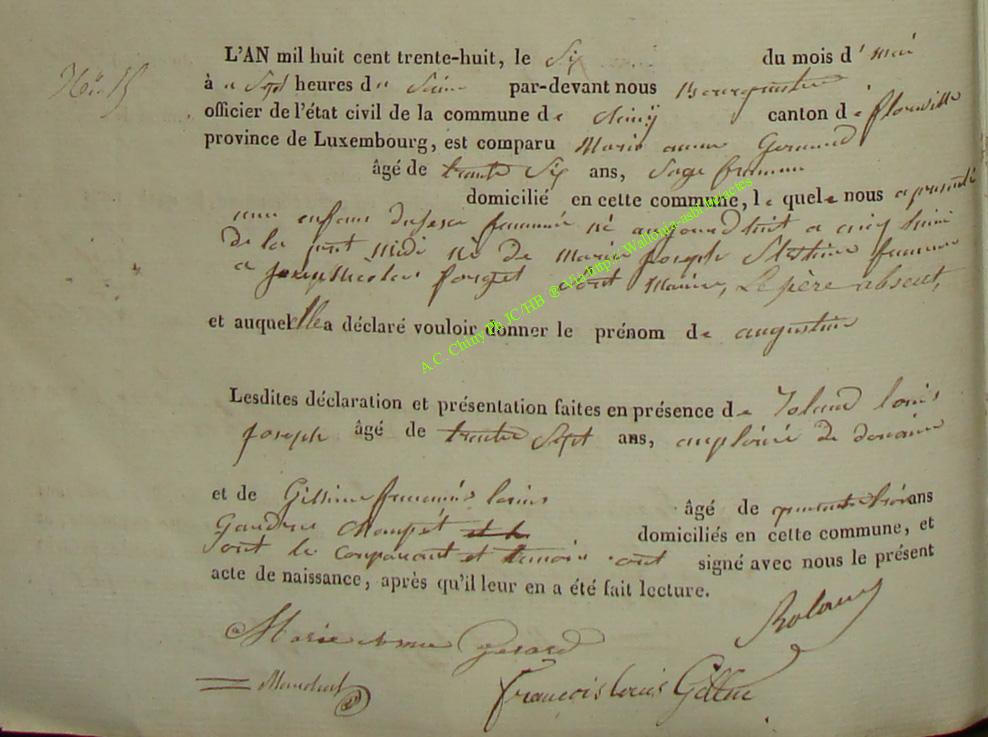 N.o 15
L'AN mil huit cent trente-huit, le Six du mois d' mai
à " Sept heures d" Soir par-devant nous Bourguemestre
officier de l'état civil de la commune de chiny canton de florenville
province de Luxembourg, est comparu Marie anne Gerard
âgé de trente Six ans, Sage femme
domicilié en cette commune, le quele nous a presenté
une enfant du sexe né aujourdhuit a cinq heure
de la midi né de Marie joseph femme
a joseph Nicolas forget Le père absent,
et auquel elle a déclaré vouloir donner le prénom de augustine
Lesdites déclaration et présentation faites en présence de Roland louis
joseph âgé de trente Sept ans, emploiée de douane
et de françois louis âgé de quarante trois ans
Gardes domiciliés en cette commune, et
Sont le comparant et temoin ont signé avec nous le présent
acte de naissance, après qu'il leur en a été fait lecture.
Marie Anne Gerard Roland
françois louis
A.C. Chiny Ph JC/HB ® Via http:// Wallonia-asbl-be/actes